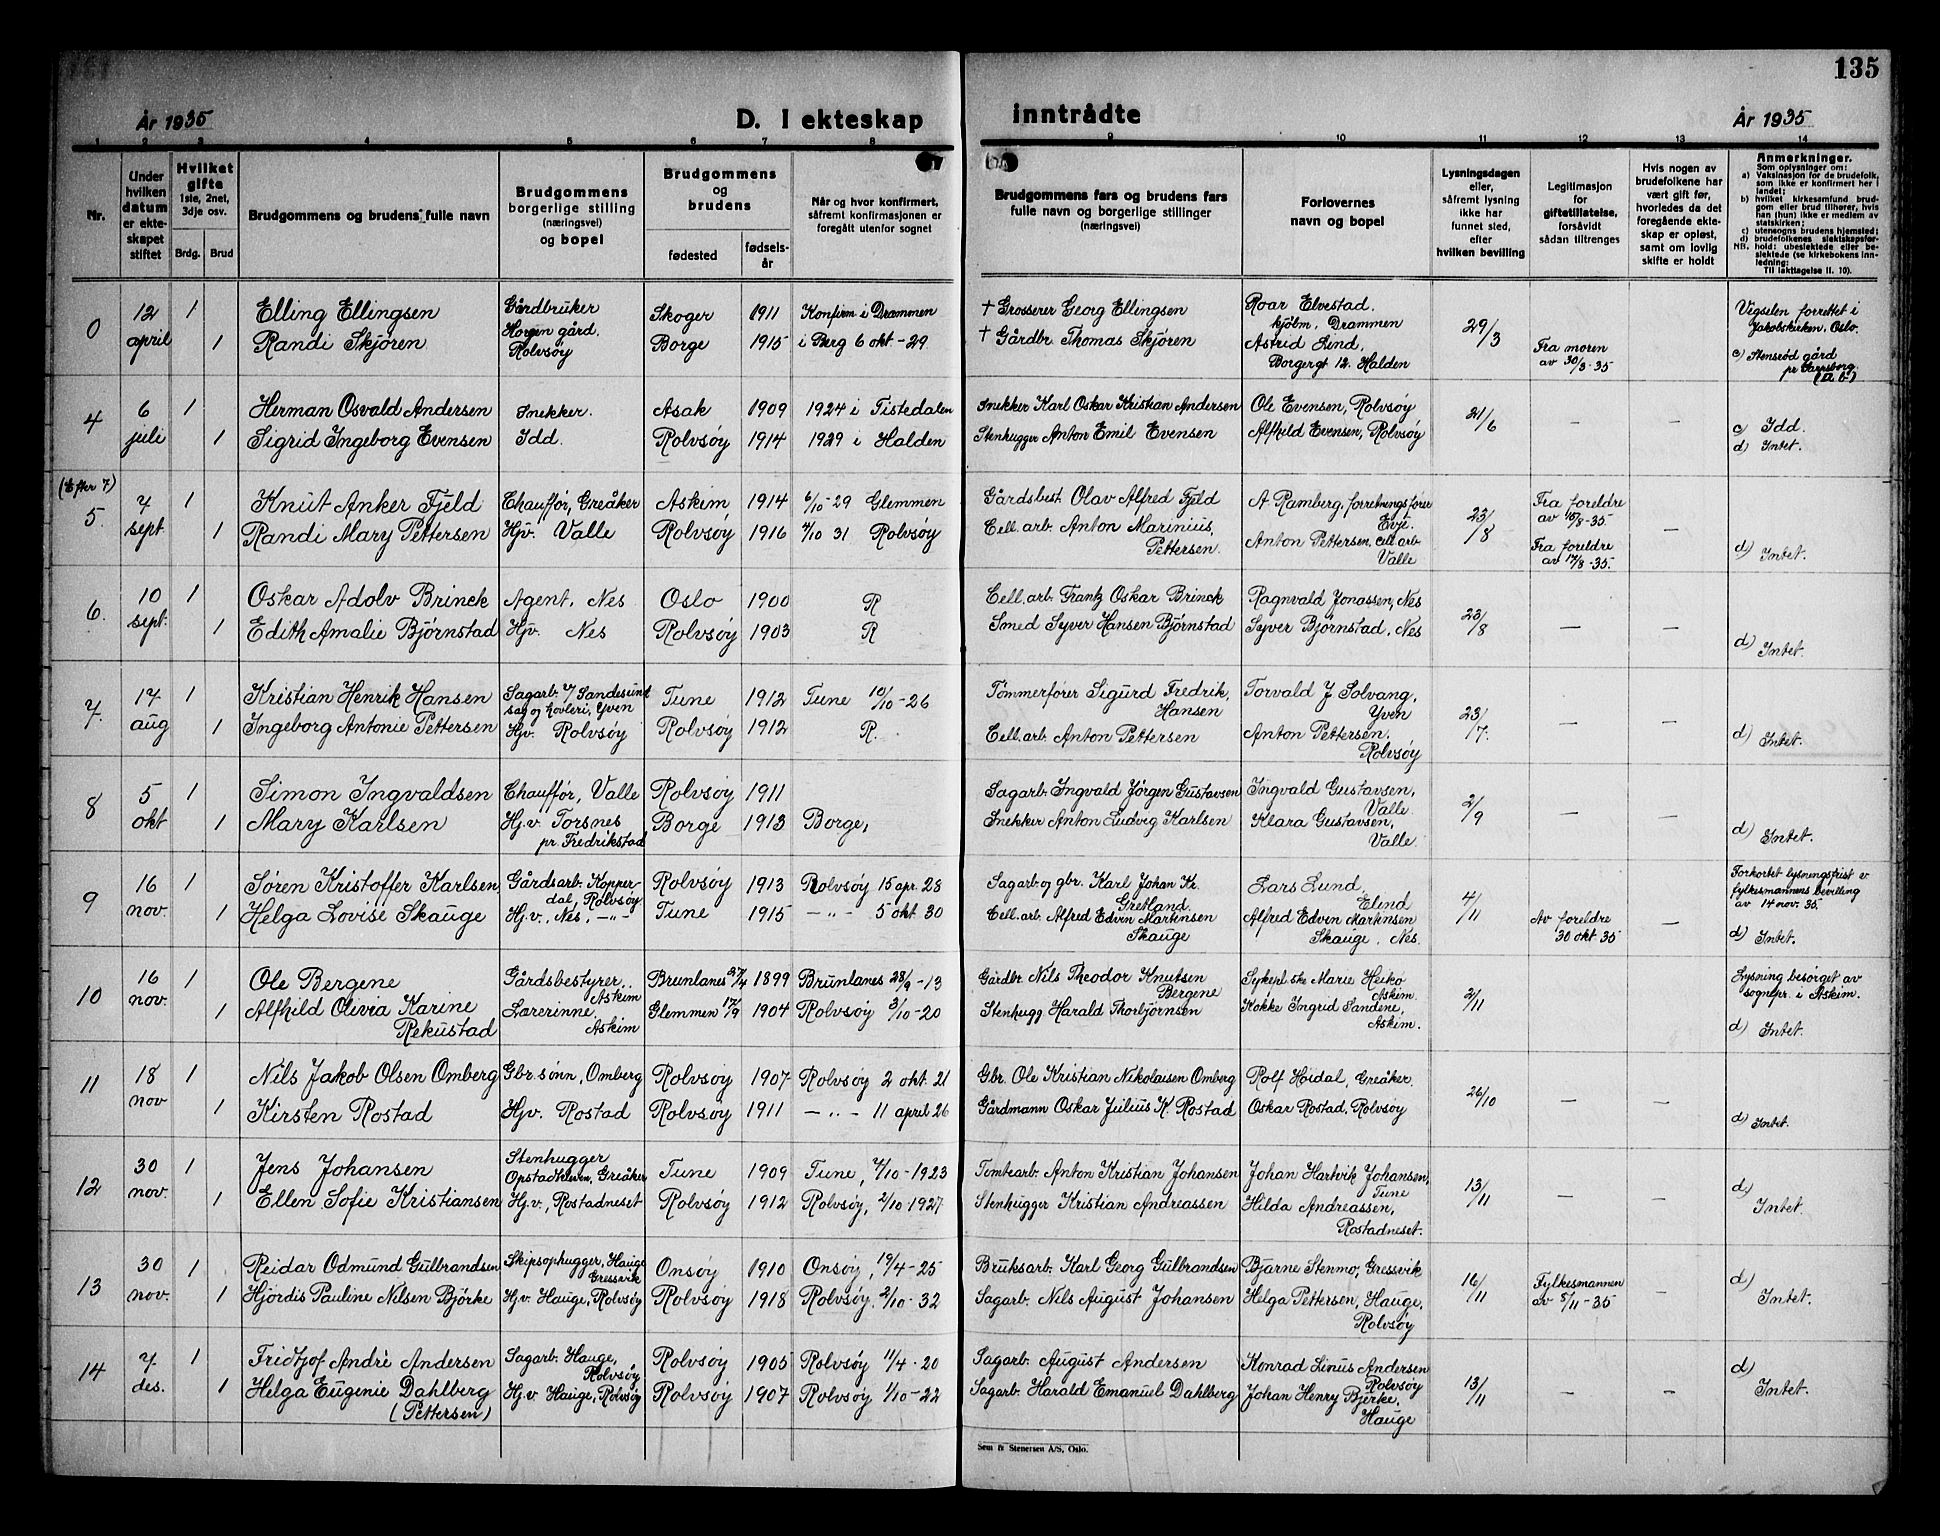 135
År 1935
D. I ekteskap
inntrådte
År 1935
1 2 3 4 5 6 7 8 9 10 11 12 13 14
Nr.
Under hvilken datum er ekteskapet stiftet
Hvilket gifte
1ste, 2net, 3dje osv.
Brdg. Brud
Brudgommens og brudens fulle navn
Brudgommens borgerlige stilling (næringsvei) og bopel
Brudgommens og brudens
fødested
fødselsår
Når og hvor konfirmert, såfremt konfirmasjonen er foregått utenfor sognet
Brudgommens fars og brudens fars fulle navn og borgerlige stillinger (næringsvei)
Forlovernes navn og bopel
Lysningsdagen eller, såfremt lysning ikke har funnet sted, efter hvilken bevilling
Legitimasjon for giftetillatelse, forsåvidt sådan tiltrenges
Hvis nogen av brudefolkene har vært gift før, hvorledes da det foregående ekteskap er opløst, samt om lovlig skifte er holdt
Anmerkninger.
Som oplysninger om:
a) Vaksinasjon for de brudefolk, som ikke er konfirmert her i landet;
b) hvilket kirkesamfund brudgom eller brud tilhører, hvis han (hun) ikke er medlem av statskirken;
c) utensogns brudens hjemsted;
d) brudefolkenes slektskapsforhold: ubeslektede eller beslektede (se kirkebokens innledning:
NB. Til iakttagelse II. 10).
0 12 april 1 Elling Ellingsen Gårdbruker Horgen gård, Rolvsøy Skoger 1911 Konfirm i Drammen † Grosserer Georg Ellingsen Roar Elvestad. kjøbm. Drammen 29/3 — Vigselen forrettet i Jakobskirken, Oslo.
1 Randi Skjøren Borge 1915 i Berg 6 okt - 29 † Gårdbr Thomas Skjøren Astrid Lund, Borgergt 12. Halden Fra moren av 30/3-35 c) Stensrød gård
4 6 juli 1 Herman Osvald Andersen Snekker. Idd. Asak 1909 1924 i Tistedalen Snekker Karl Oskar Kristian Andersen Ole Evensen, Rolvsøy 21/6 — — c) Idd.
1 Sigrid Ingeborg Evensen Rolvsøy 1914 1929 i Halden Stenhugger Anton Emil Evensen Alfhild Evensen, Rolvsøy d) Intet.
(Efter 7)
5. 7 sept. 1 Knut Anker Fjeld Chauffør, Greåker Askim 1914 6/10-29 Glemmen Gårdsbest. Olav Alfred Fjeld A. Ramberg, forretningsfører Evje. 23/8 Fra foreldre av 15/8-35 —
1 Randi Mary Pettersen Hjv. Valle Rolvsøy 1916 4/10 31 Rolvsøy Cell. arb. Anton Marinius, Pettersen. Anton Pettersen, cell arb. Valle Fra foreldre av 17/8-35. d) Intet.
6. 10 sept. 1 Oskar Adolv Brinck Agent. Nes Oslo 1900 R Cell. arb. Frantz Oskar Brinck Ragnvald Jonassen, Nes 23/8 — —
1 Edith Amalie Bjørnstad Hjv. Nes Rolvsøy 1903 R Smed Syver Hansen Bjørnstad Syver Bjørnstad, Nes d) Intet.
7. 14 aug 1 Kristian Henrik Hansen Sagarb. v/ Sandesund sag og høvleri, Yven Tune 1912 Tune 10/10-26 Tømmerfører Sigurd Fredrik, Hansen Torvald J Solvang, Yven 23/7. — —
1 Ingeborg Antonie Pettersen Hjv. Rolvsøy Rolvsøy 1912 R. Cell. arb. Anton Pettersen Anton Pettersen, Rolvsøy d) Intet.
8 5 okt 1 Simon Ingvaldsen Chauffør, Valle Rolvsøy 1911 Sagarb. Ingvald Jørgen Gustavsen Ingvald Gustavsen, Valle 2/9 — —
1 Mary Karlsen Hj.v Torsnes pr. Fredrikstad Borge 1913 Borge, Snekker Anton Ludvig Karlsen Klara Gustavsen, Valle. d) Intet.
9 16 nov. 1 Søren Kristoffer Karlsen Gårdsarb. Kopperdal, Rolvsøy Rolvsøy 1913 Rolvsøy 15 apr. 28 Sagarb. og gbr. Karl Johan Kr. Gretland. Lars Lund, Elind 4/11 Forkortet lysningsfrist v fylkesmannens bevilling av 14 nov. 35.
1 Helga Lovise Skauge Hj.v., Nes, —"— Tune 1915 —"— 5 okt 30 Cell. arb. Alfred Edvin Martinsen Skauge Alfred Edvin Martinsen Skauge, Nes Av foreldre 30 okt 35 — d) Intet.
10 16 nov. 1 Ole Bergene Gårdsbestyrer, Askim Brunlanes 27/4 1899 Brunlanes 28/9-13 Gårdbr. Nils Theodor Knutsen Bergene Sykepl.ske Marie Heiko Askim. 2/11 — — Lysning besørget av sognepr. i Askim.
1 Alfhild Olivia Karine Rekustad Lærerinne. Askim Glemmen 17/9 1904 Rolvsøy 3/10-20 Stenhugg Harald Thorbjørnsen Kokke Ingrid Sandene, Askim. d) Intet.
11 18 nov 1 Nils Jakob Olsen Omberg Gbr. sønn, Omberg Rolvsøy 1907 Rolvsøy 2 okt. 21 Gbr. Ole Kristian Nikolaisen Omberg Rolf Høidal, Greåker. 26/10 — —
1 Kirsten Rostad Hjv. Rostad Rolvsøy 1911 —"— 11 april 26 Gårdmann Oskar Julius K. Rostad Oskar Rostad, Rolvsøy d) Intet.
12 30 nov. 1 Jens Johansen Stenhugger Opstadkleven, Greåker Tune 1909 Tune, 7/10-1923 Tomtearb. Anton Kristian Johansen Johan Hartvik Johansen, Tune 13/11 — — d)
1 Ellen Sofie Kristiansen Hj.v., Rostadneset Rolvsøy 1912 Rolvsøy, 2/10-1927 Stenhugger Kristian Andreassen Hilda Andreassen, Rostadneset. Intet.
13 30 nov. 1 Reidar Odmund Gulbrandsen Skipsophugger, Hauge Gressvik Onsøy 1910 Onsøy, 19/4-25 Bruksarb. Karl Georg Gulbrandsen Bjarne Stenmo, Gressvik 16/11 Fylkesmannen av 5/11-35 — d)
1 Hjørdis Pauline Nilsen Bjørke Hj.v. Hauge, Rolvsøy Rolvsøy 1918 Rolvsøy. 2/10-32 Sagarb. Nils August Johansen Helga Pettersen, Hauge, Rolvsøy Intet.
14 7 des. 1 Fridtjof André Andersen Sagarb. Hauge, Rolvsøy Rolvsøy 1905 Rolvsøy 11/4-20 Sagarb. August Andersen Konrad Linus Andersen Rolvsøy 13/11 — — d)
1 Helga Eugenie Dahlberg (Pettersen) Hj.v Hauge, Rolvsøy Rolvsøy 1907 Rolvsøy 1/10-22 Sagarb. Harald Emanuel Dahlberg Johan Henry Bjerke, Hauge Intet.
Sem & Stenersen A/S, Oslo.